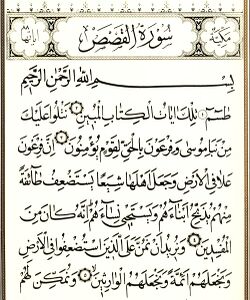 مَكِّيَّة سُورَةُ الْقَصَصِ آيَاتُهَا
بِسْمِ اللَّهِ الرَّحْمَٰنِ الرَّحِيمِ
طسم تِلْكَ ءَايَاتُ الْكِتَابِ الْمُبِينِ نَتْلُوا عَلَيْكَ
مِن نَّبَإِ مُوسَىٰ وَفِرْعَوْنَ بِالْحَقِّ لِقَوْمٍ يُؤْمِنُونَ إِنَّ فِرْعَوْنَ
عَلَا فِي الْأَرْضِ وَجَعَلَ أَهْلَهَا شِيَعًا يَسْتَضْعِفُ طَائِفَةً
مِّنْهُمْ يُذَبِّحُ أَبْنَاءَهُمْ وَيَسْتَحْيِي نِسَاءَهُمْ إِنَّهُ كَانَ مِنَ
الْمُفْسِدِينَ وَنُرِيدُ أَن نَّمُنَّ عَلَى الَّذِينَ اسْتُضْعِفُوا فِي الْأَرْضِ
وَنَجْعَلَهُمْ أَئِمَّةً وَنَجْعَلَهُمُ الْوَارِثِينَ وَنُمَكِّنَ لَهُمْ